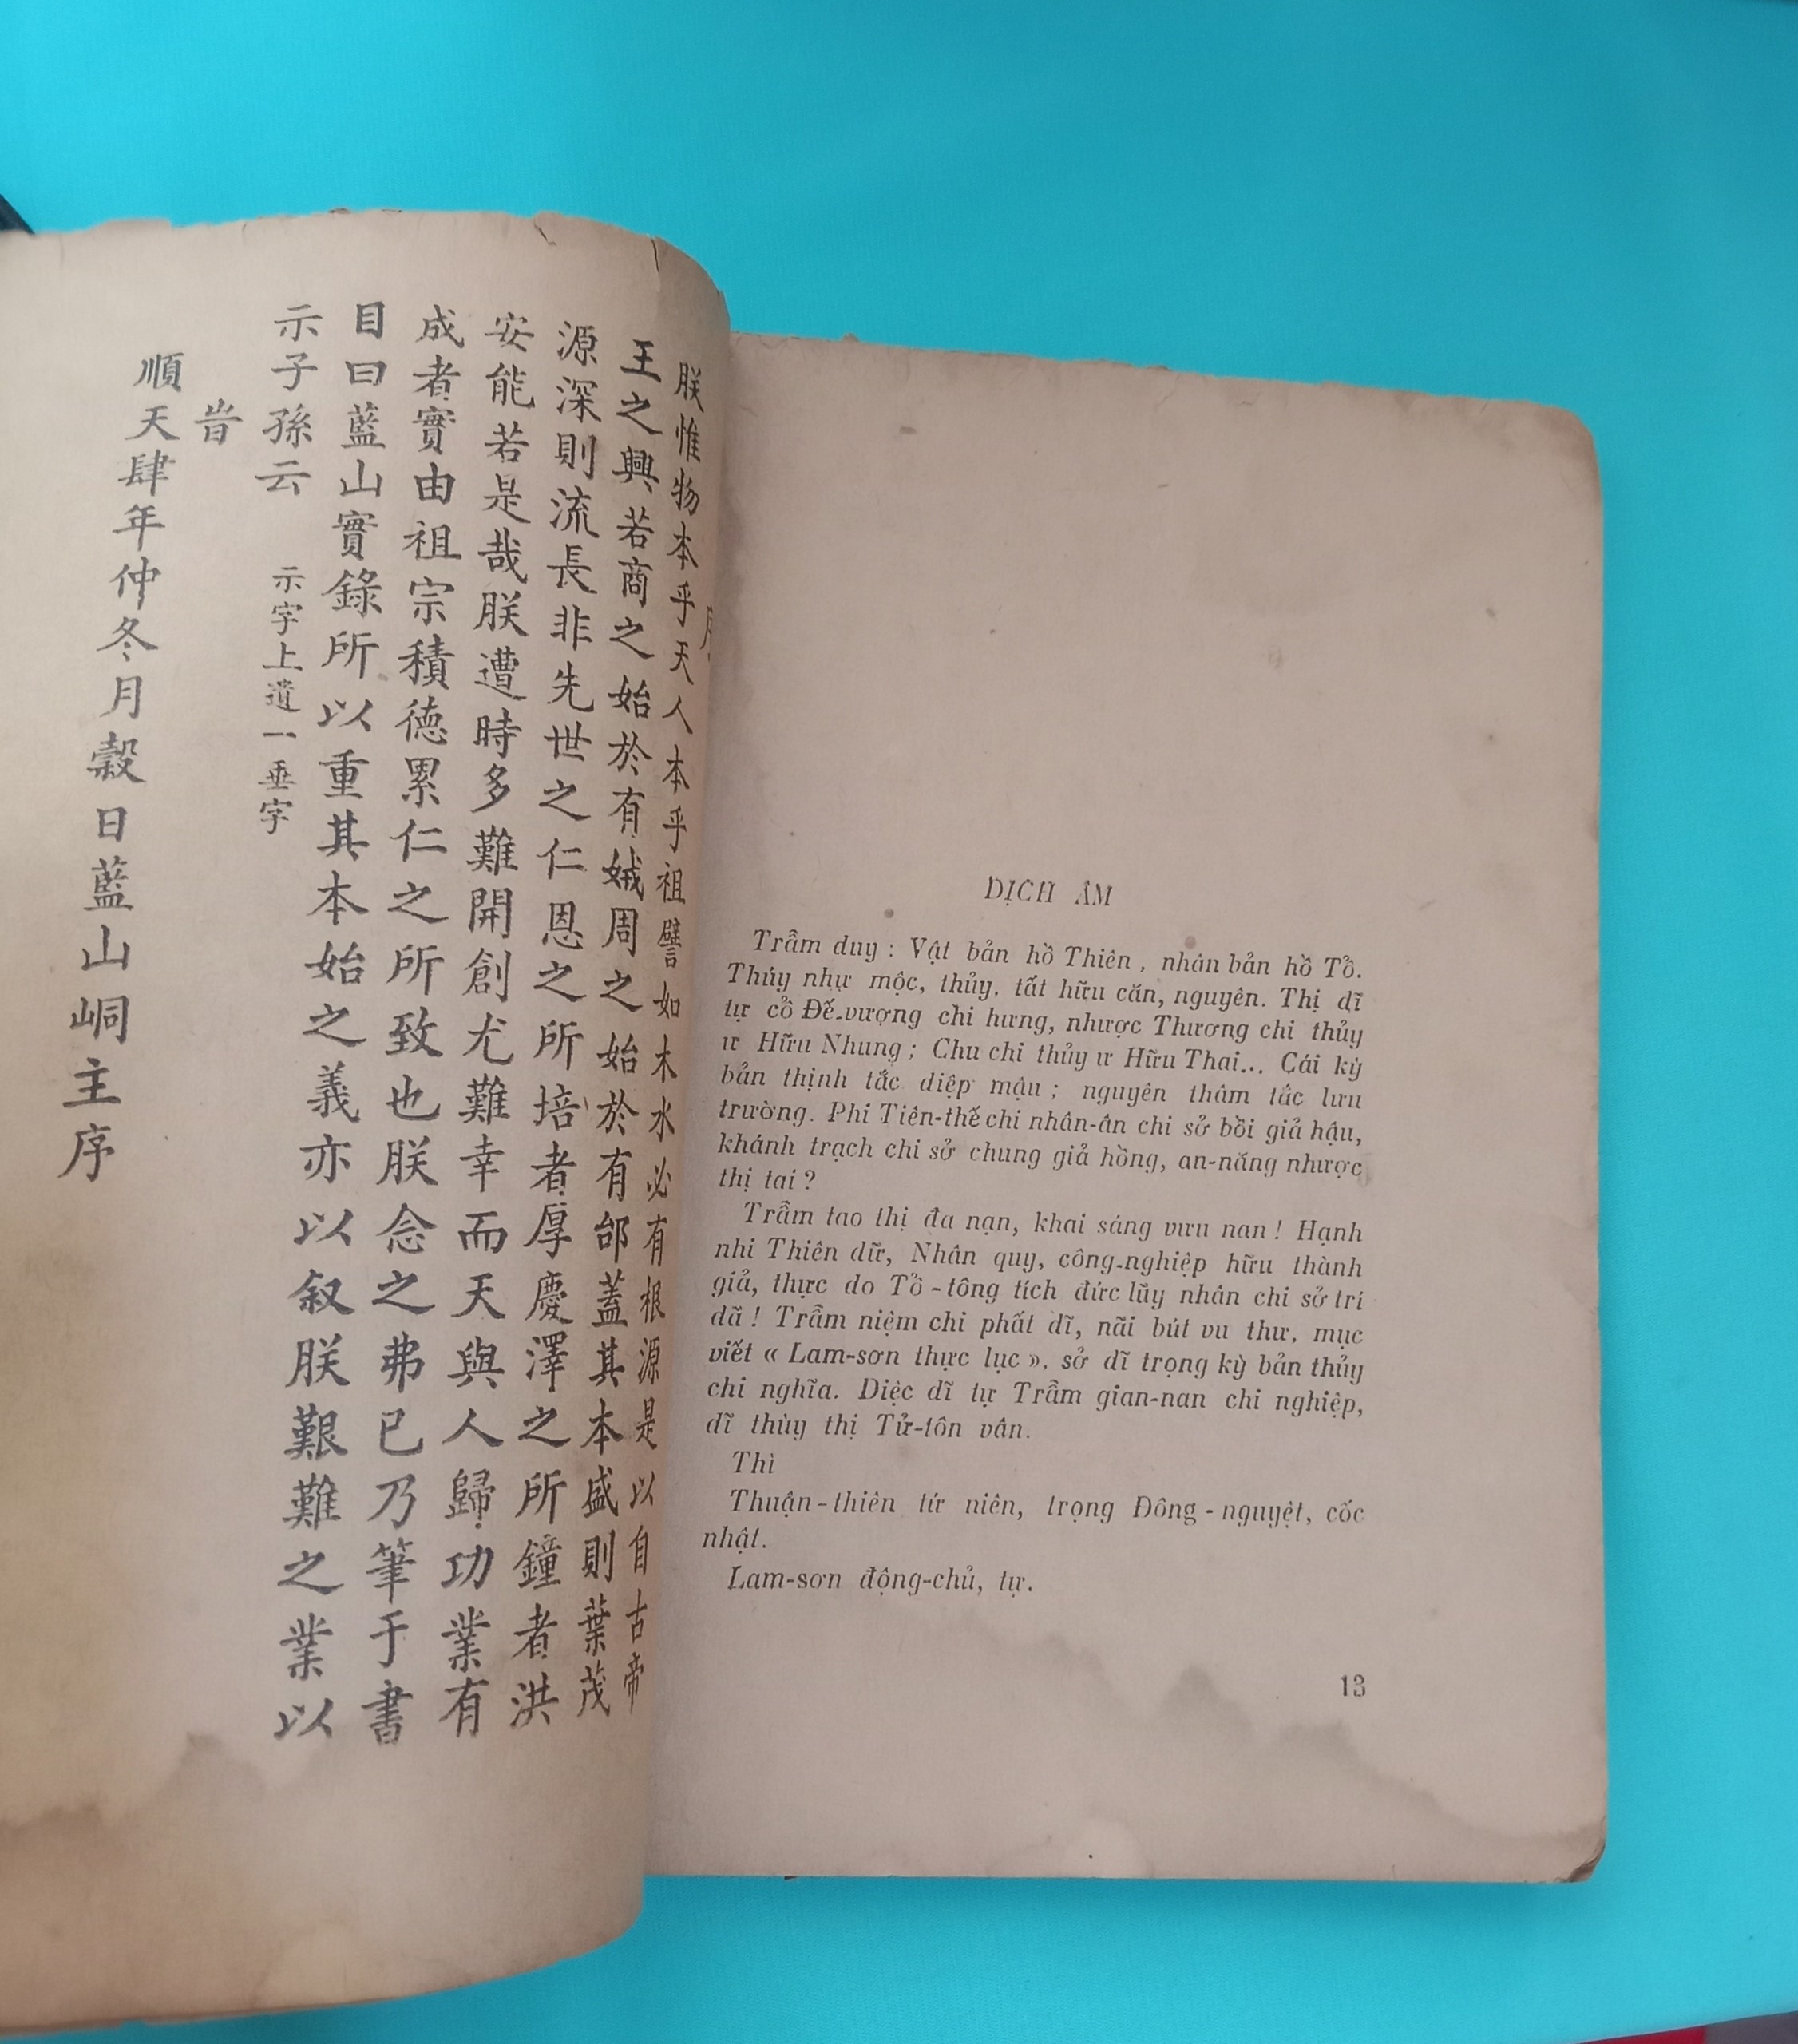 序
朕惟物本乎天人本乎祖譬如木水必有根源是以自古帝
王之興若商之始於有娀周之始於有邰蓋其本盛則葉茂
源深則流長非先世之仁恩之所培者厚慶澤之所鐘者洪
安能若是哉朕遭時多難開創尤難幸而天與人歸功業有
成者實由祖宗積德累仁之所致也朕念之弗已乃筆于書
目曰藍山實錄所以重其本始之義亦以叙朕艱難之業以
示子孫云 示字上遺一垂字
旹
順天肆年仲冬月穀日藍山峒主序
DỊCH ÂM
Trẫm duy : Vật bản hồ Thiên, nhân bản hồ Tổ.
Thúy như mộc, thủy, tất hữu căn, nguyên. Thị dĩ
tự cổ Đế-vượng chi hưng, nhược Thương chi thủy
ư Hữu Nhung ; Chu chi thủy ư Hữu Thai... Cái kỳ
bản thịnh tắc diệp mậu ; nguyên thâm tắc lưu
trường. Phi Tiên-thế chi nhân-ân chi sở bồi giả hậu,
khánh trạch chi sở chung giả hồng, an-năng nhược
thị tai ?
Trẫm tao thị đa nạn, khai sáng vưu nan ! Hạnh
nhi Thiên dữ, Nhân quy, công-nghiệp hữu thành
giả, thực do Tổ-tông tích đức lũy nhân chi sở trí
dã ! Trẫm niệm chi phất dĩ, nãi bút vu thư, mục
viết « Lam-sơn thực lục », sở dĩ trọng kỳ bản thủy
chi nghĩa. Diệc dĩ tự Trẫm gian-nan chi nghiệp,
dĩ thùy thị Tử-tôn vân.
Thì
Thuận-thiên tứ niên, trọng Đông-nguyệt, cốc
nhật.
Lam-sơn động-chủ, tự.
13